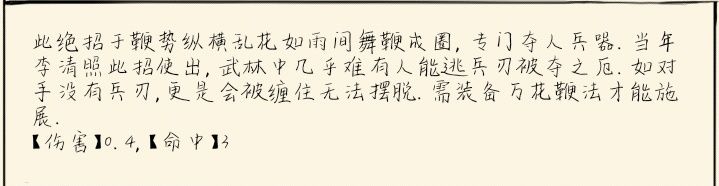 此绝招于鞭势纵横乱花如雨间舞鞭成圈, 专门夺人兵器. 当年
李清照此招使出, 武林中几乎难有人能逃兵刃被夺之厄. 如对
手没有兵刃, 更是会被缠住无法摆脱. 需装备万花鞭法才能施
展.
【伤害】0.4,【命中】3